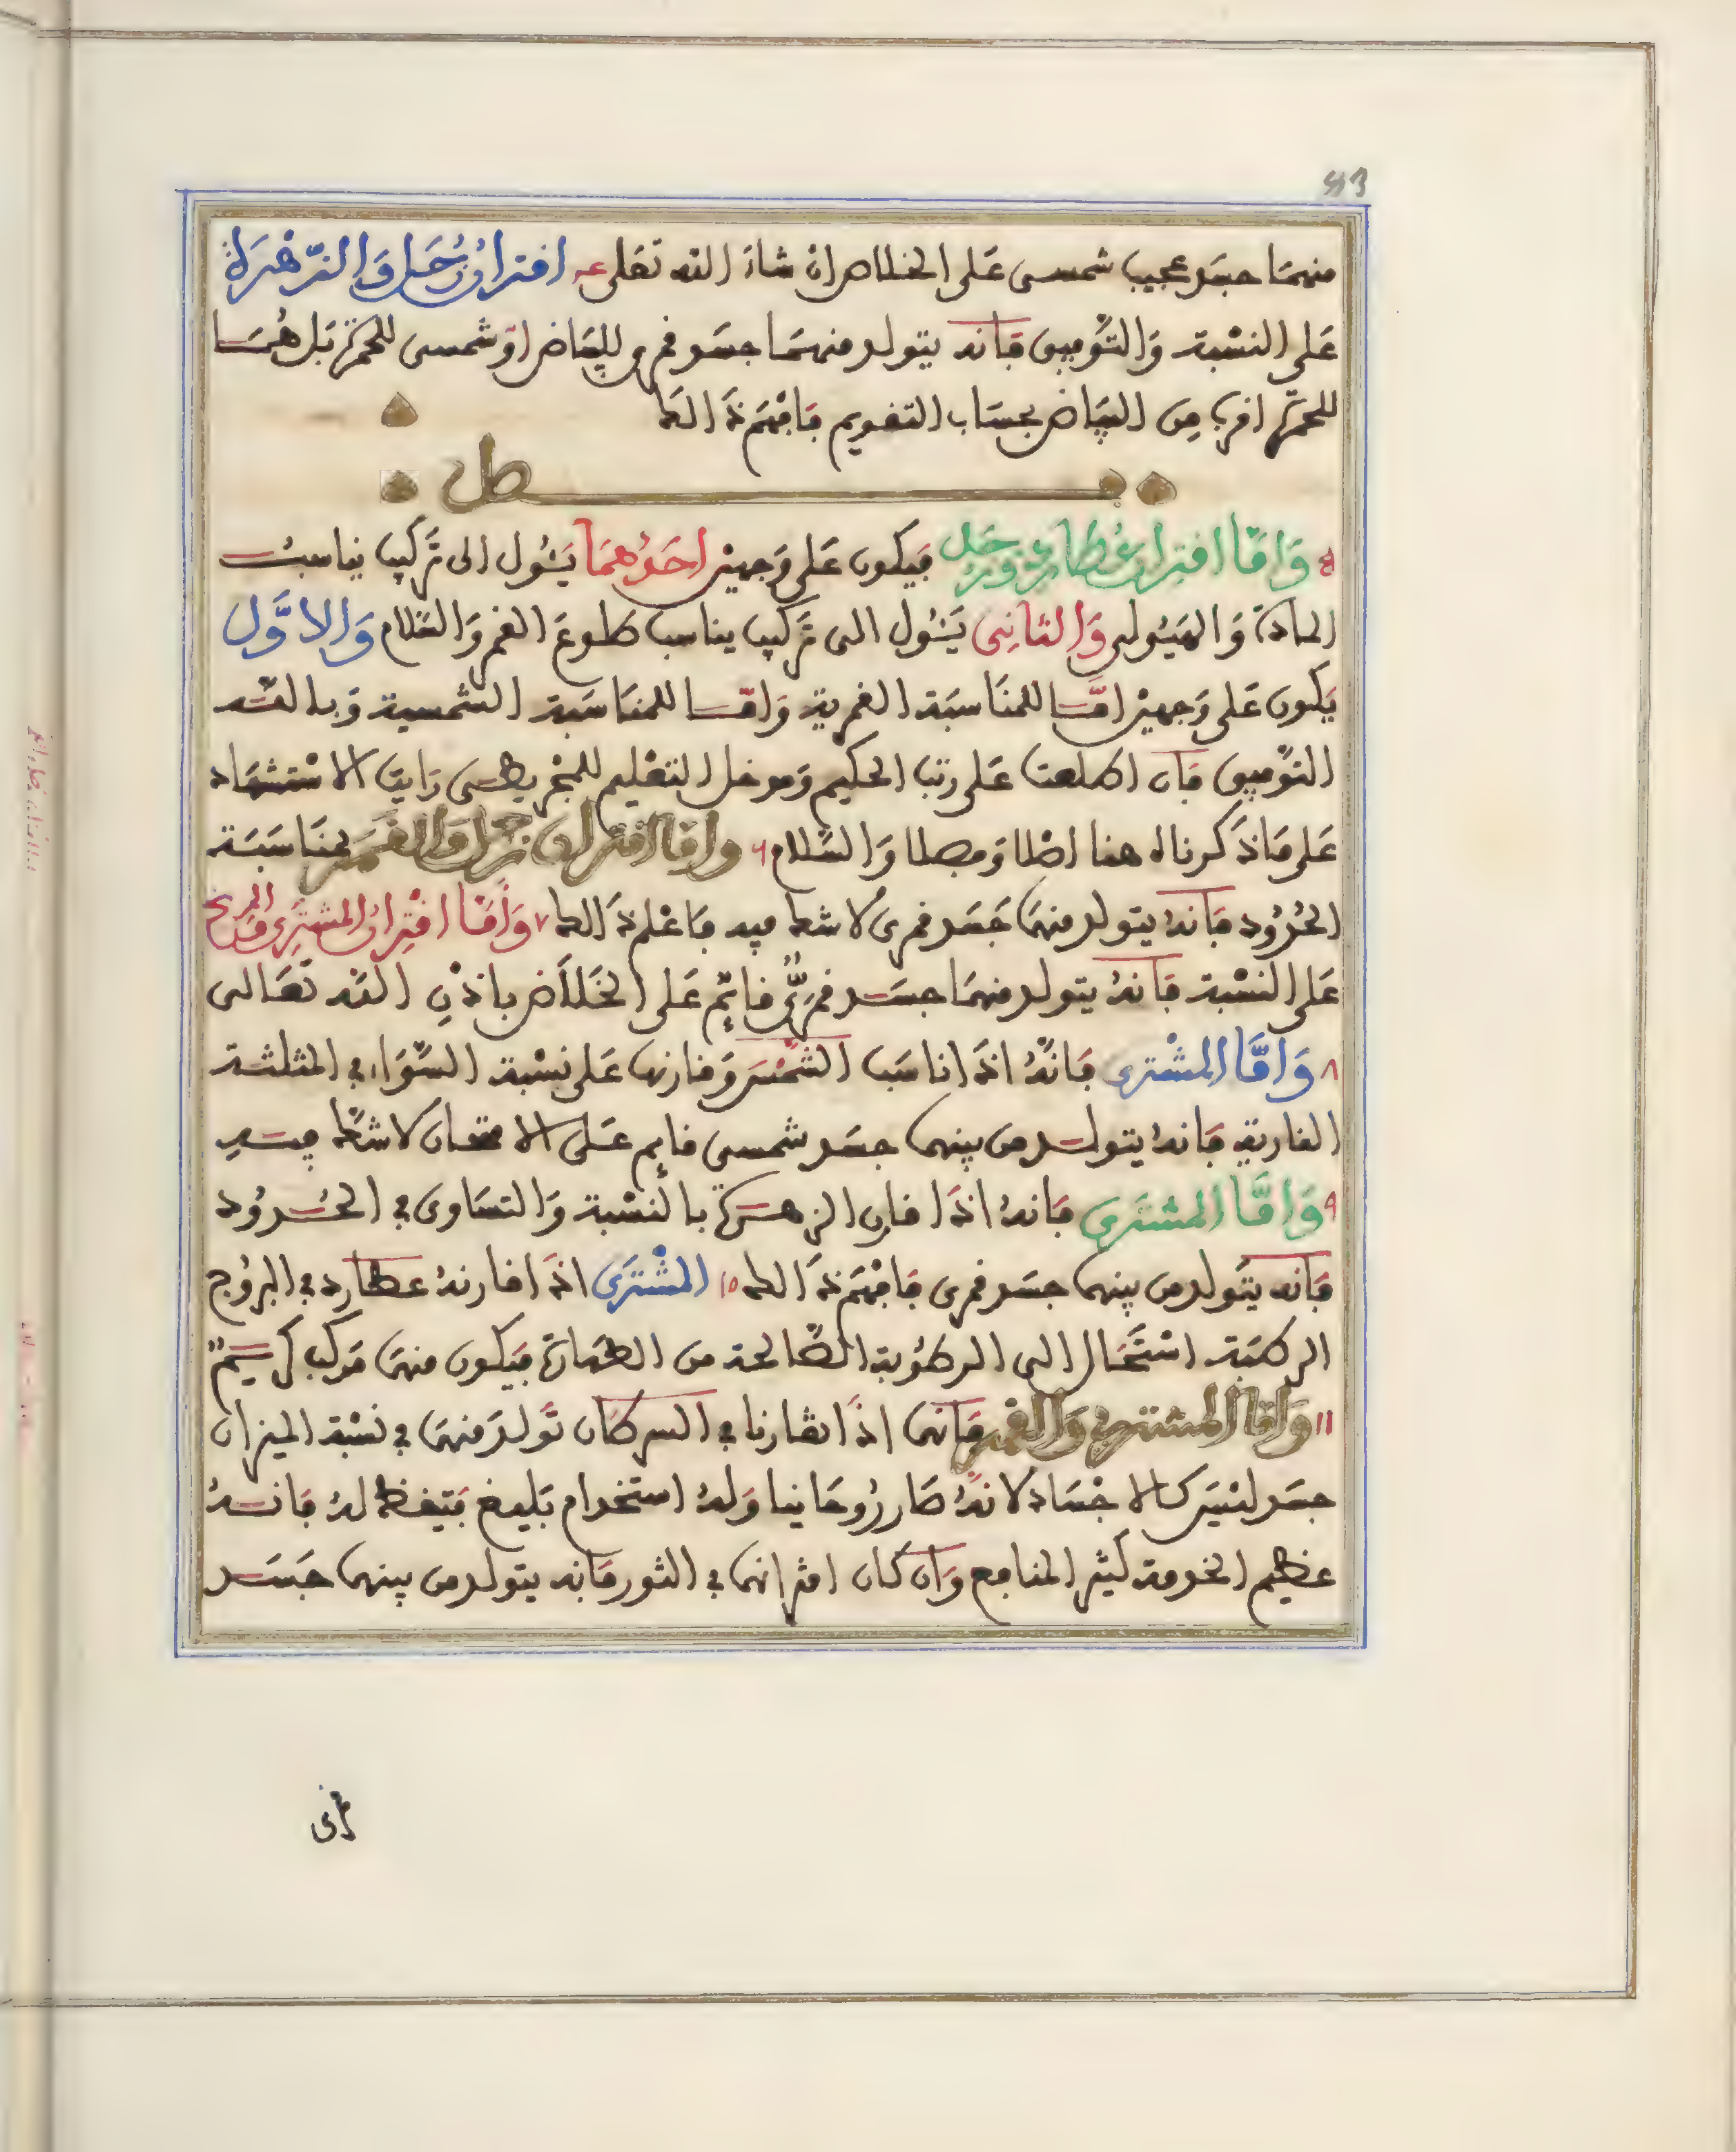 83
منهما جسد عجيب شمسى على الخلاص ان شاء الله تعلى ٤ افتران زحل والزهرة
على النسبة والتوفيق فانه يتولد منهما جسد قمرى للبياض او شمسى للحمرة بل هما
للحمرة اقرب من البياض بحساب التقويم فافهم ذالك
فصل
٥ واما اقتران عطارد وزحل فيكون على وجهين احدهما يئول الى تركيب يناسب
المادة والهيولى والثانى يئول الى تركيب يناسب طلوع القمر والسلام والاول
يكون على وجهين اما للمناسبة القمرية واما للمناسبة الشمسية وبالله
التوفيق فان اطلعت على رتب الحكيم ومدخل التعليم للمجريطى رايت الاستشهاد
على ما ذكرناه هنا اصلا وفصلا والسلام ٦ واما اقتران زحل والقمر بمناسبة
الحدود فانه يتولد منهما جسد قمرى لا شك فيه فاعلم ذالك ٧ واما اقتران المشترى والمريخ
على النسبة فانه يتولد منهما جسد قمرى قائم على الخلاص باذن الله تعالى
٨ واما المشترى فانه اذا ناسب الشمس وقارنها على نسبة السواء فى المثلثة
النارية فانه يتولد من بينهما جسد شمسى قايم على الامتحان لا شك فيه
٩ واما المشترى فانه اذا قارن الزهرة بالنسبة والتساوى فى الحدود
فانه يتولد من بينهما جسد قمرى فافهم ذالك ١٥ المشترى اذا قارنه عطارد فى البروج
الرطبة استحال الى الرطوبة الصالحة من الطهارة فيكون منهما مركب كريم
١١ واما المشترى والقمر فانهما اذا تقارنا فى السرطان تولد منهما فى نسبة الميزان
جسد ليس كالاجساد لانه صار روحانيا وله استخدام بليغ فتيقظ له فانه
عظيم الخدمة كثير المنافع وان كان اقترانهما فى الثور فانه يتولد من بينهما جسد